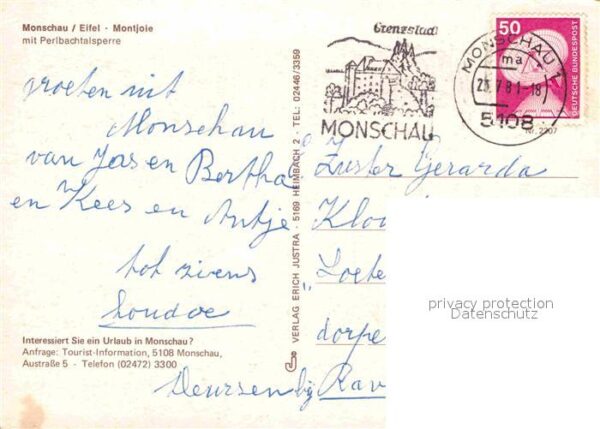 Monschau / Eifel · Montjoie
mit Perlbachtalsperre
groeten uit
Monschau
van Jas en Bertha
en Kees en Antje
tot ziens
houdoe
Interessiert Sie ein Urlaub in Monschau?
Anfrage: Tourist-Information, 5108 Monschau,
Austraße 5 - Telefon (02472) 3300
VERLAG ERICH JUSTRA · 5169 HEIMBACH 2 · TEL: 02446/3359
Grenzstadt
MONSCHAU
MONSCHAU 1
ma
-18
5108
50
DEUTSCHE BUNDESPOST
Nr. 2207
Zuster Gerarda
Kloo
"Loete
dorpe
Deursen bij Rav
privacy protection
Datenschutz